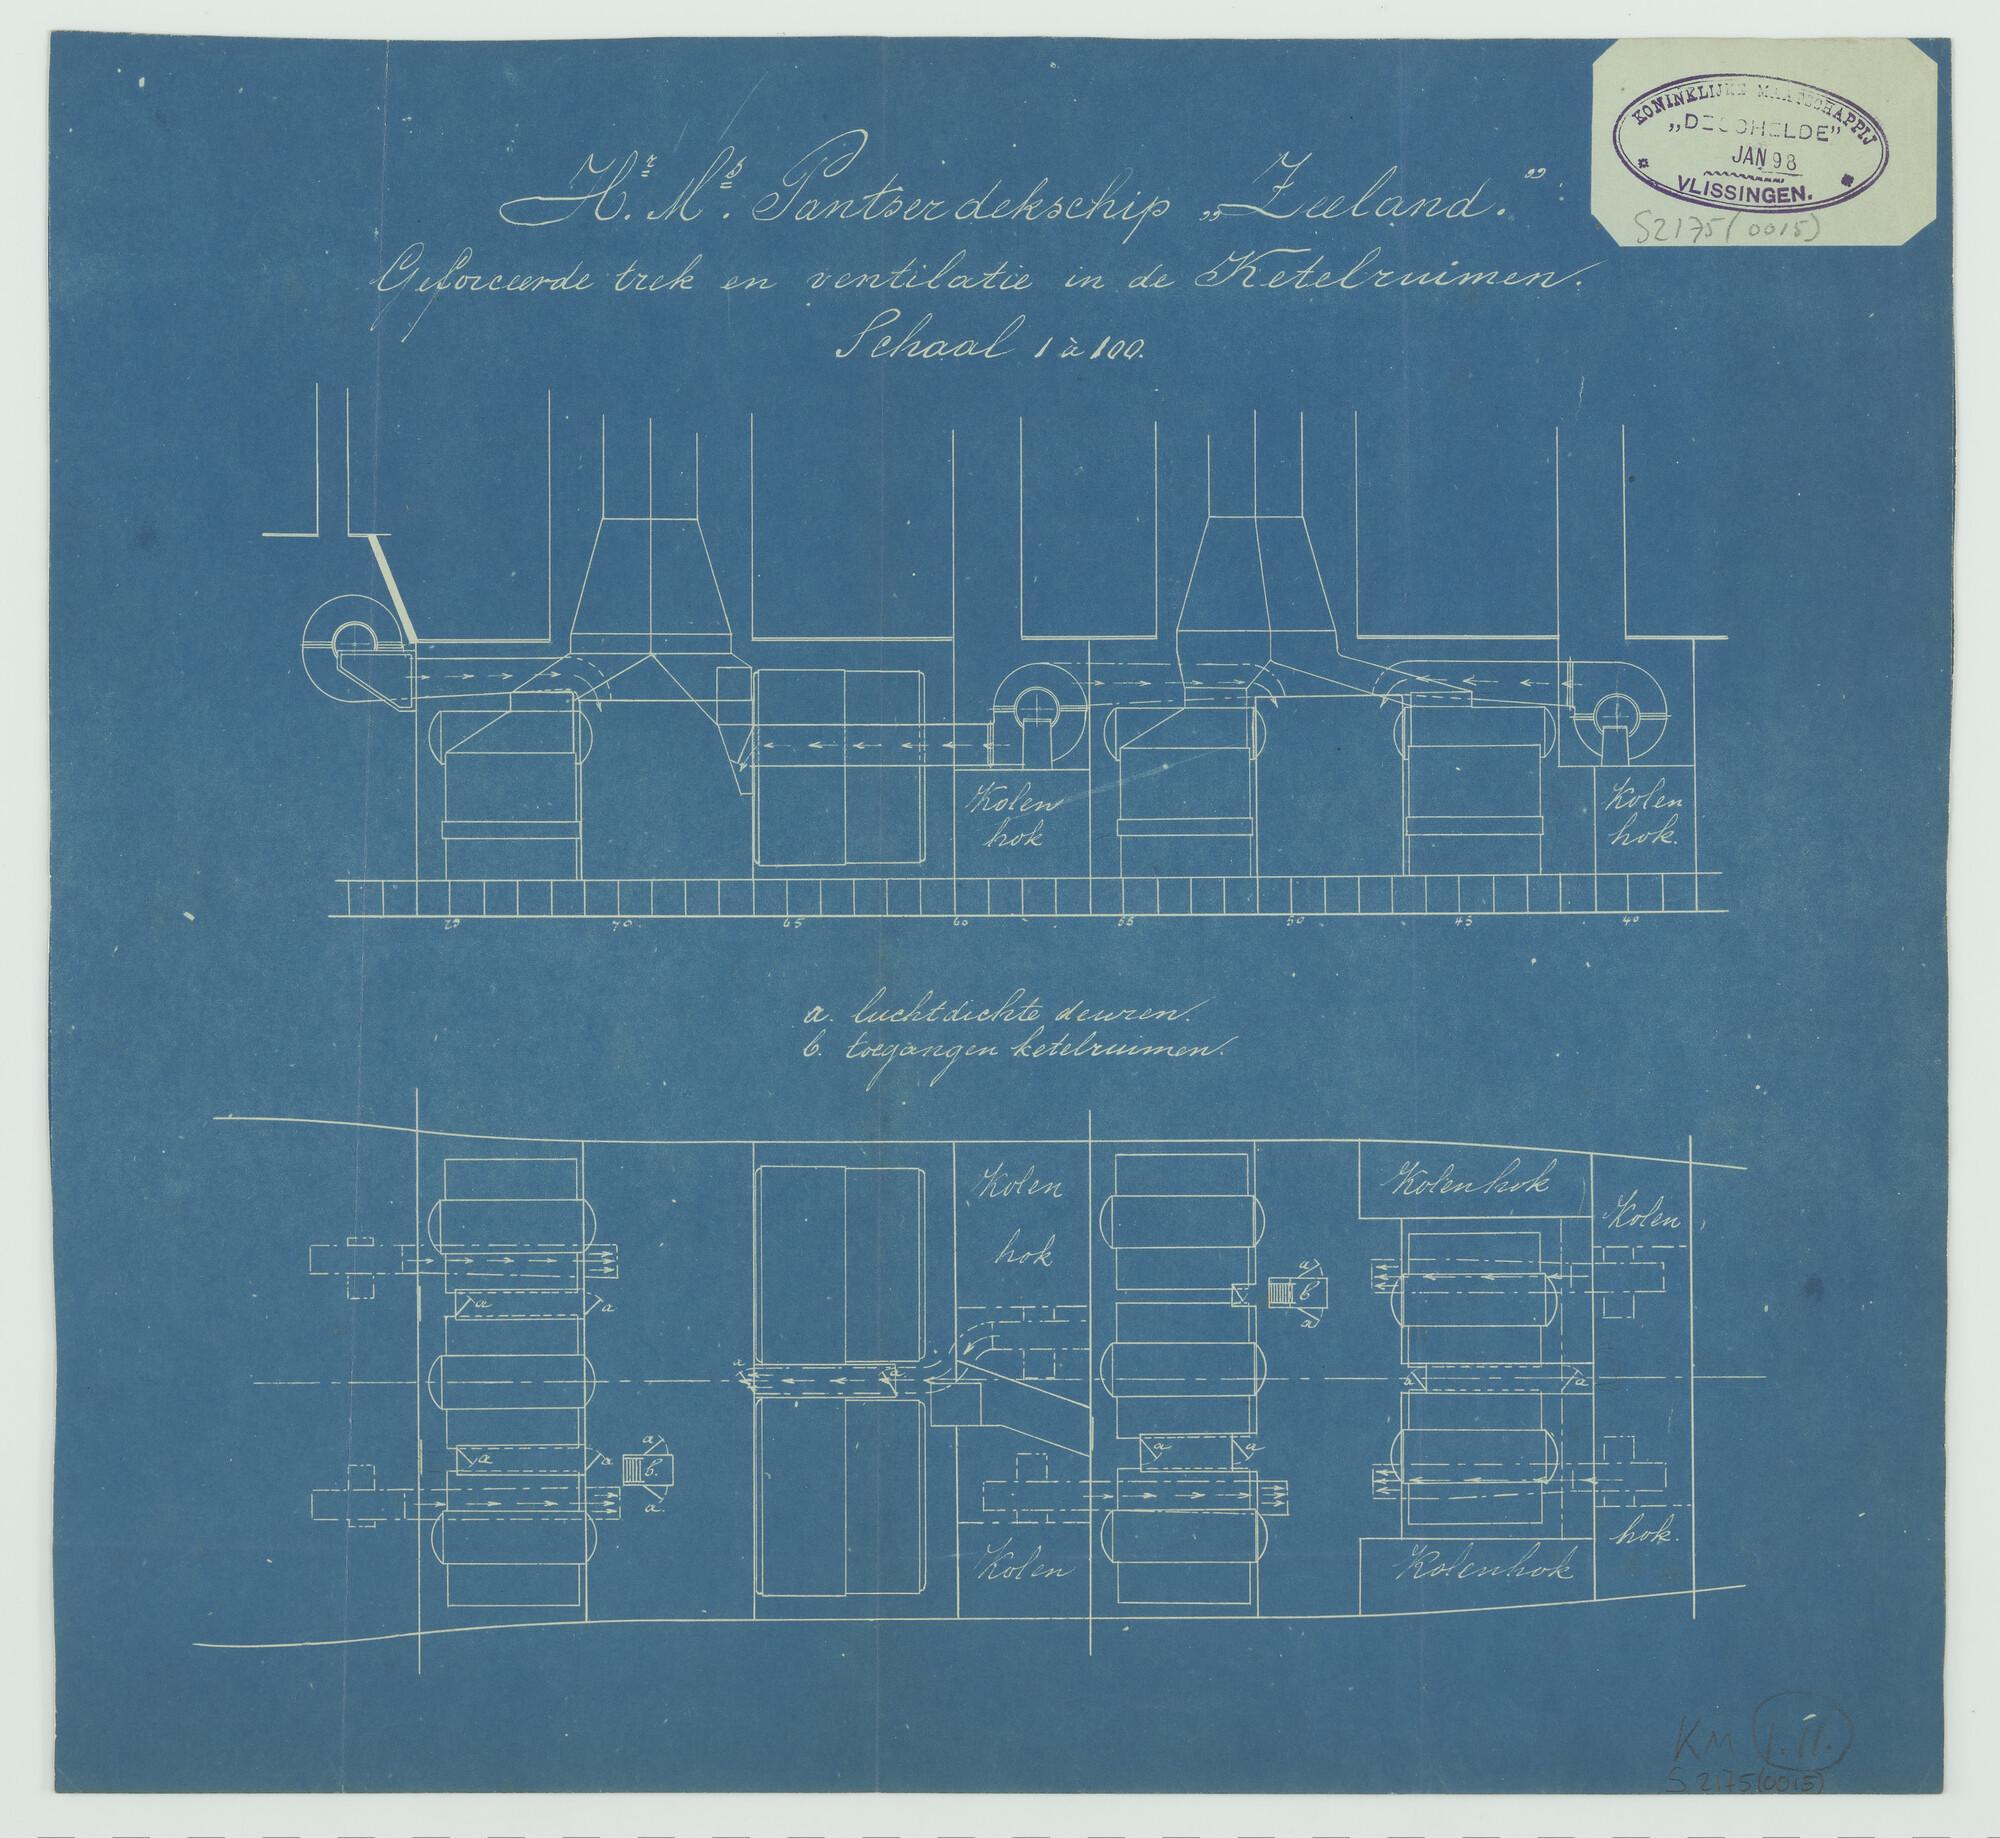 KONINKLIJKE MAATSCHAPPIJ
„DE SCHELDE”
JAN 98
VLISSINGEN.
S2175(0015)
Hr. Ms. Pantserdekschip „Zeeland.”
Geforceerde trek en ventilatie in de Ketelruimen.
Schaal 1 à 100.
Kolen
hok
Kolen
hok.
75 70 65 60 55 50 45 40
a. luchtdichte deuren.
b. toegangen ketelruimen.
Kolen
hok
Kolenhok
Kolen
a
b
a
a a
a a
a a
a
b.
a.
a a
a a
Kolen
Kolenhok
hok.
KM I.II.
S 2175(0015)